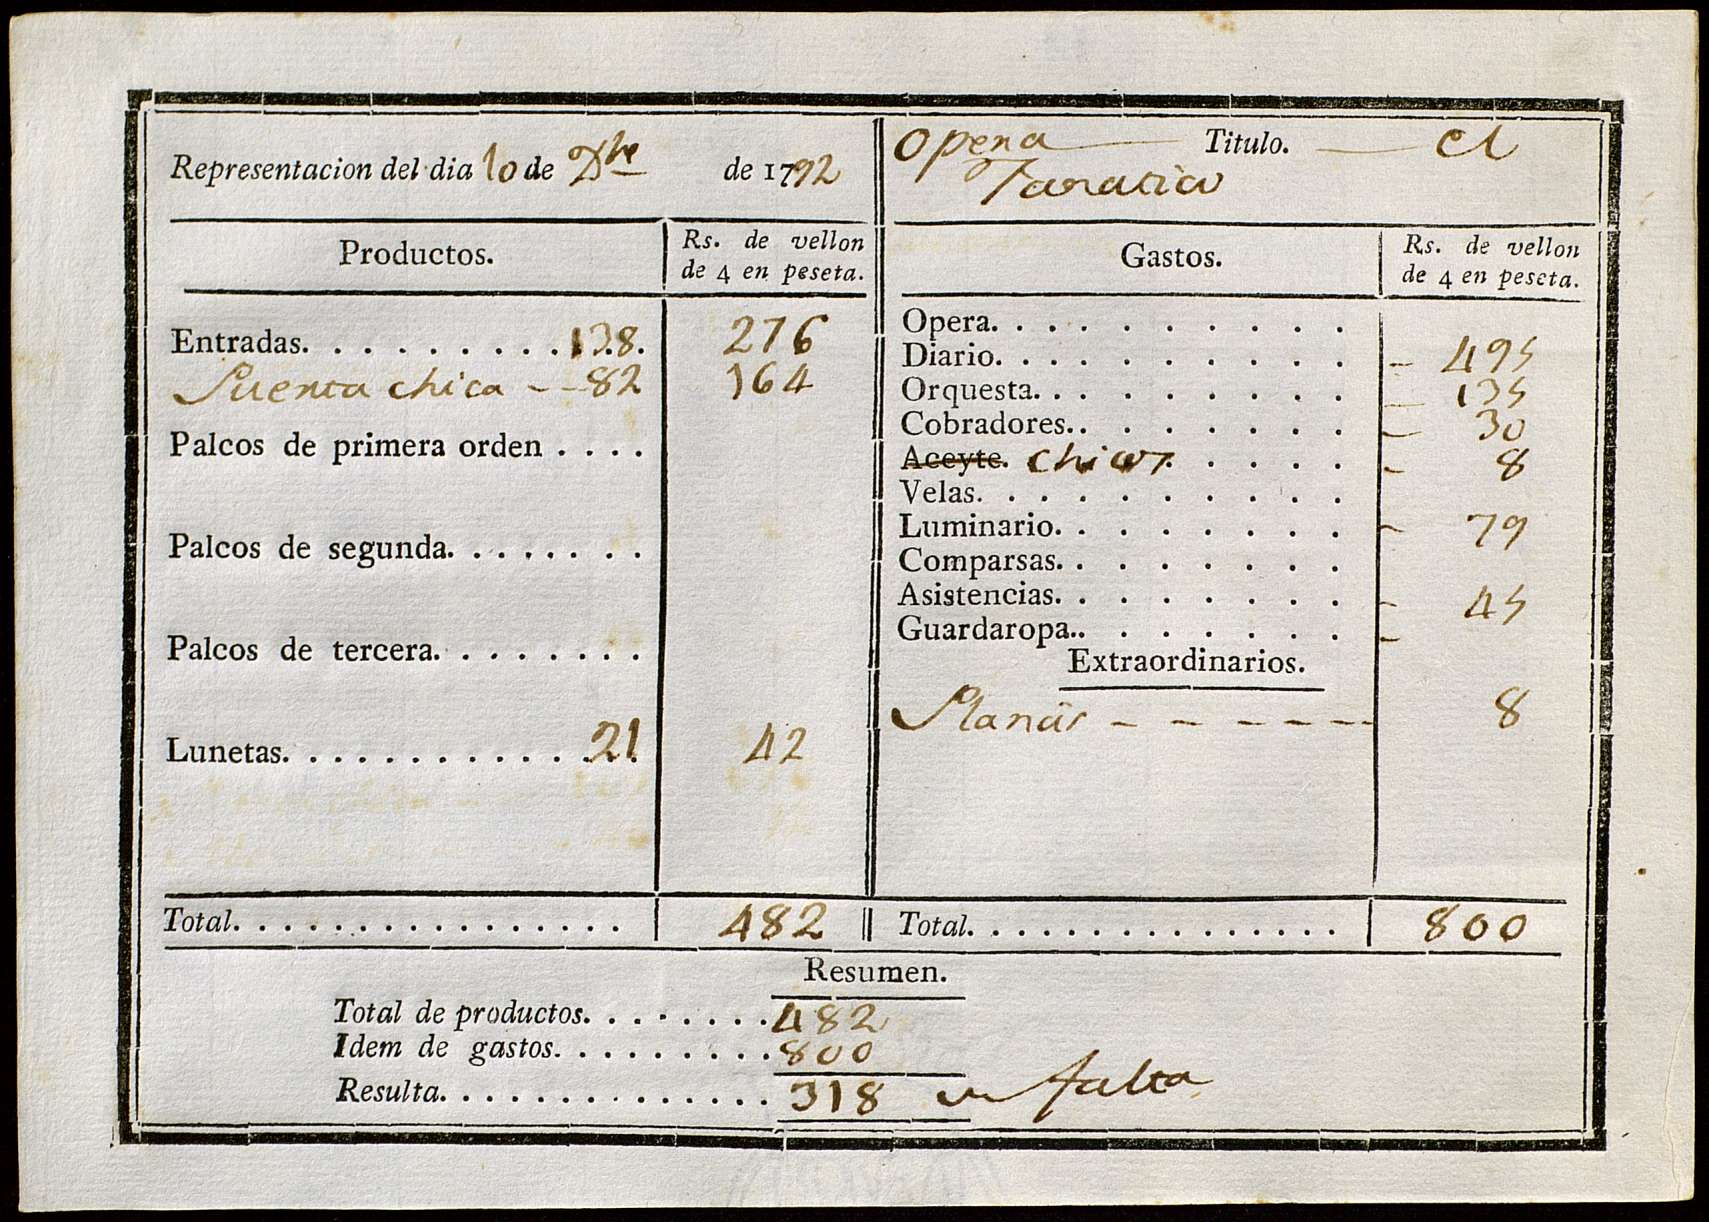 Representacion del dia 10 de Xbre de 1792
Productos. Rs. de vellon
de 4 en peseta.
Entradas. 138. 276
Puerta chica - - 82 164
Palcos de primera orden . . . .
Palcos de segunda. . . . . . . .
Palcos de tercera. . . . . . . . .
Lunetas. . . . . . . . . . . . . 21 42
Total. . . . . . . . . . . . . . . . . 482
Opera Titulo. el
Gastos. Rs. de vellon
de 4 en peseta.
Opera. . . . . . . . . . .
Diario. . . . . . . . . . . - 495
Orquesta. . . . . . . . . . - 135
Cobradores.. . . . . . . . - 30
Aceyte. chicos . . . . - 8
Velas. . . . . . . . . . .
Luminario. . . . . . . . . - 79
Comparsas. . . . . . . . .
Asistencias. . . . . . . . . - 45
Guardaropa.. . . . . . . . -
Extraordinarios.
Planas - - - - - - 8
Total. . . . . . . . . . . . . . . 800
Resumen.
Total de productos. . . . . . . . 482
Idem de gastos. . . . . . . . . . 800
Resulta. . . . . . . . . . . . . . . 318 en falta